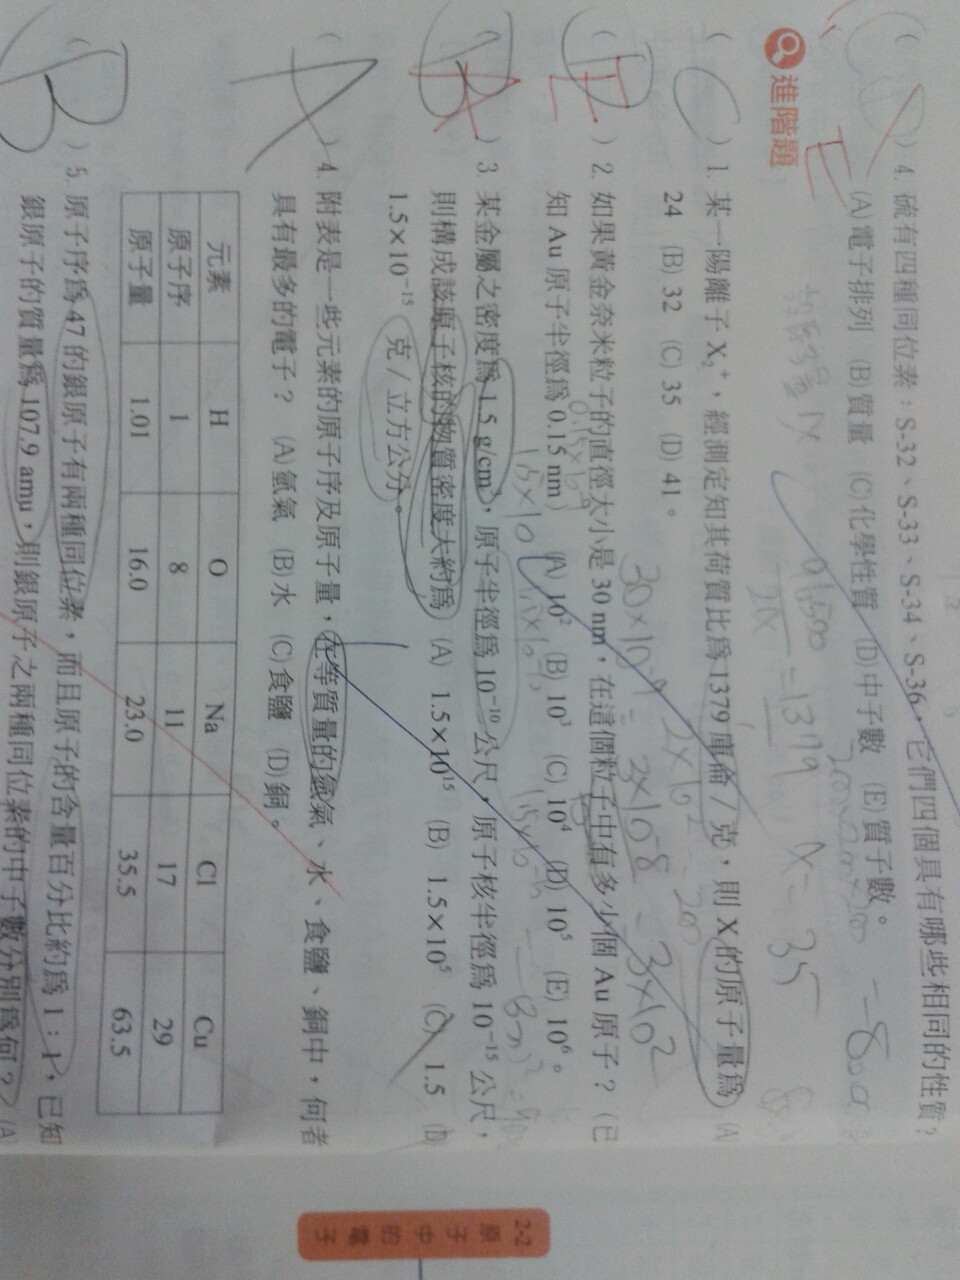 ( ) 4. 硫有四種同位素:S-32、S-33、S-34、S-36,它們四個具有哪些相同的性質?
E (A)電子排列 (B)質量 (C)化學性質 (D)中子數 (E)質子數。
進階題
( C ) 1. 某一陽離子 X₂⁺,經測定知其荷質比為 1379 庫侖/克,則 X 的原子量為 (A)
24 (B) 32 (C) 35 (D) 41。
( ) 2. 如果黃金奈米粒子的直徑大小是 30 nm,在這個粒子中有多少個 Au 原子?(已
知 Au 原子半徑為 0.15 nm) (A) 10² (B) 10³ (C) 10⁴ (D) 10⁵ (E) 10⁶。
( A ) 3. 某金屬之密度為 1.5 g/cm³,原子半徑為 10⁻¹⁰ 公尺,原子核半徑為 10⁻¹⁵ 公尺,
則構成該原子核的物質密度大約為 (A) 1.5×10¹⁵ (B) 1.5×10⁵ (C) 1.5 (D)
1.5×10⁻¹⁵ 克/立方公分。
( A ) 4. 附表是一些元素的原子序及原子量,在等質量的氫氣、水、食鹽、銅中,何者
具有最多的電子? (A)氫氣 (B)水 (C)食鹽 (D)銅。
元素 H O Na Cl Cu
原子序 1 8 11 17 29
原子量 1.01 16.0 23.0 35.5 63.5
( B ) 5. 原子序為 47 的銀原子有兩種同位素,而且原子的含量百分比約為 1:1,已知
銀原子的質量為 107.9 amu,則銀原子之兩種同位素的中子數分別為何? (A)
2-2 原子中的電子